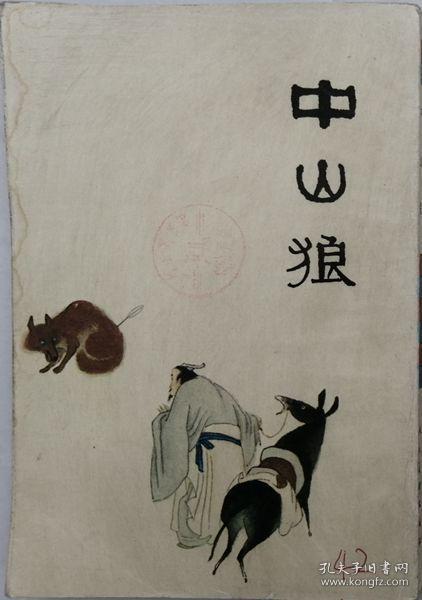 中山狼
42
孔夫子旧书网
www.kongfz.com